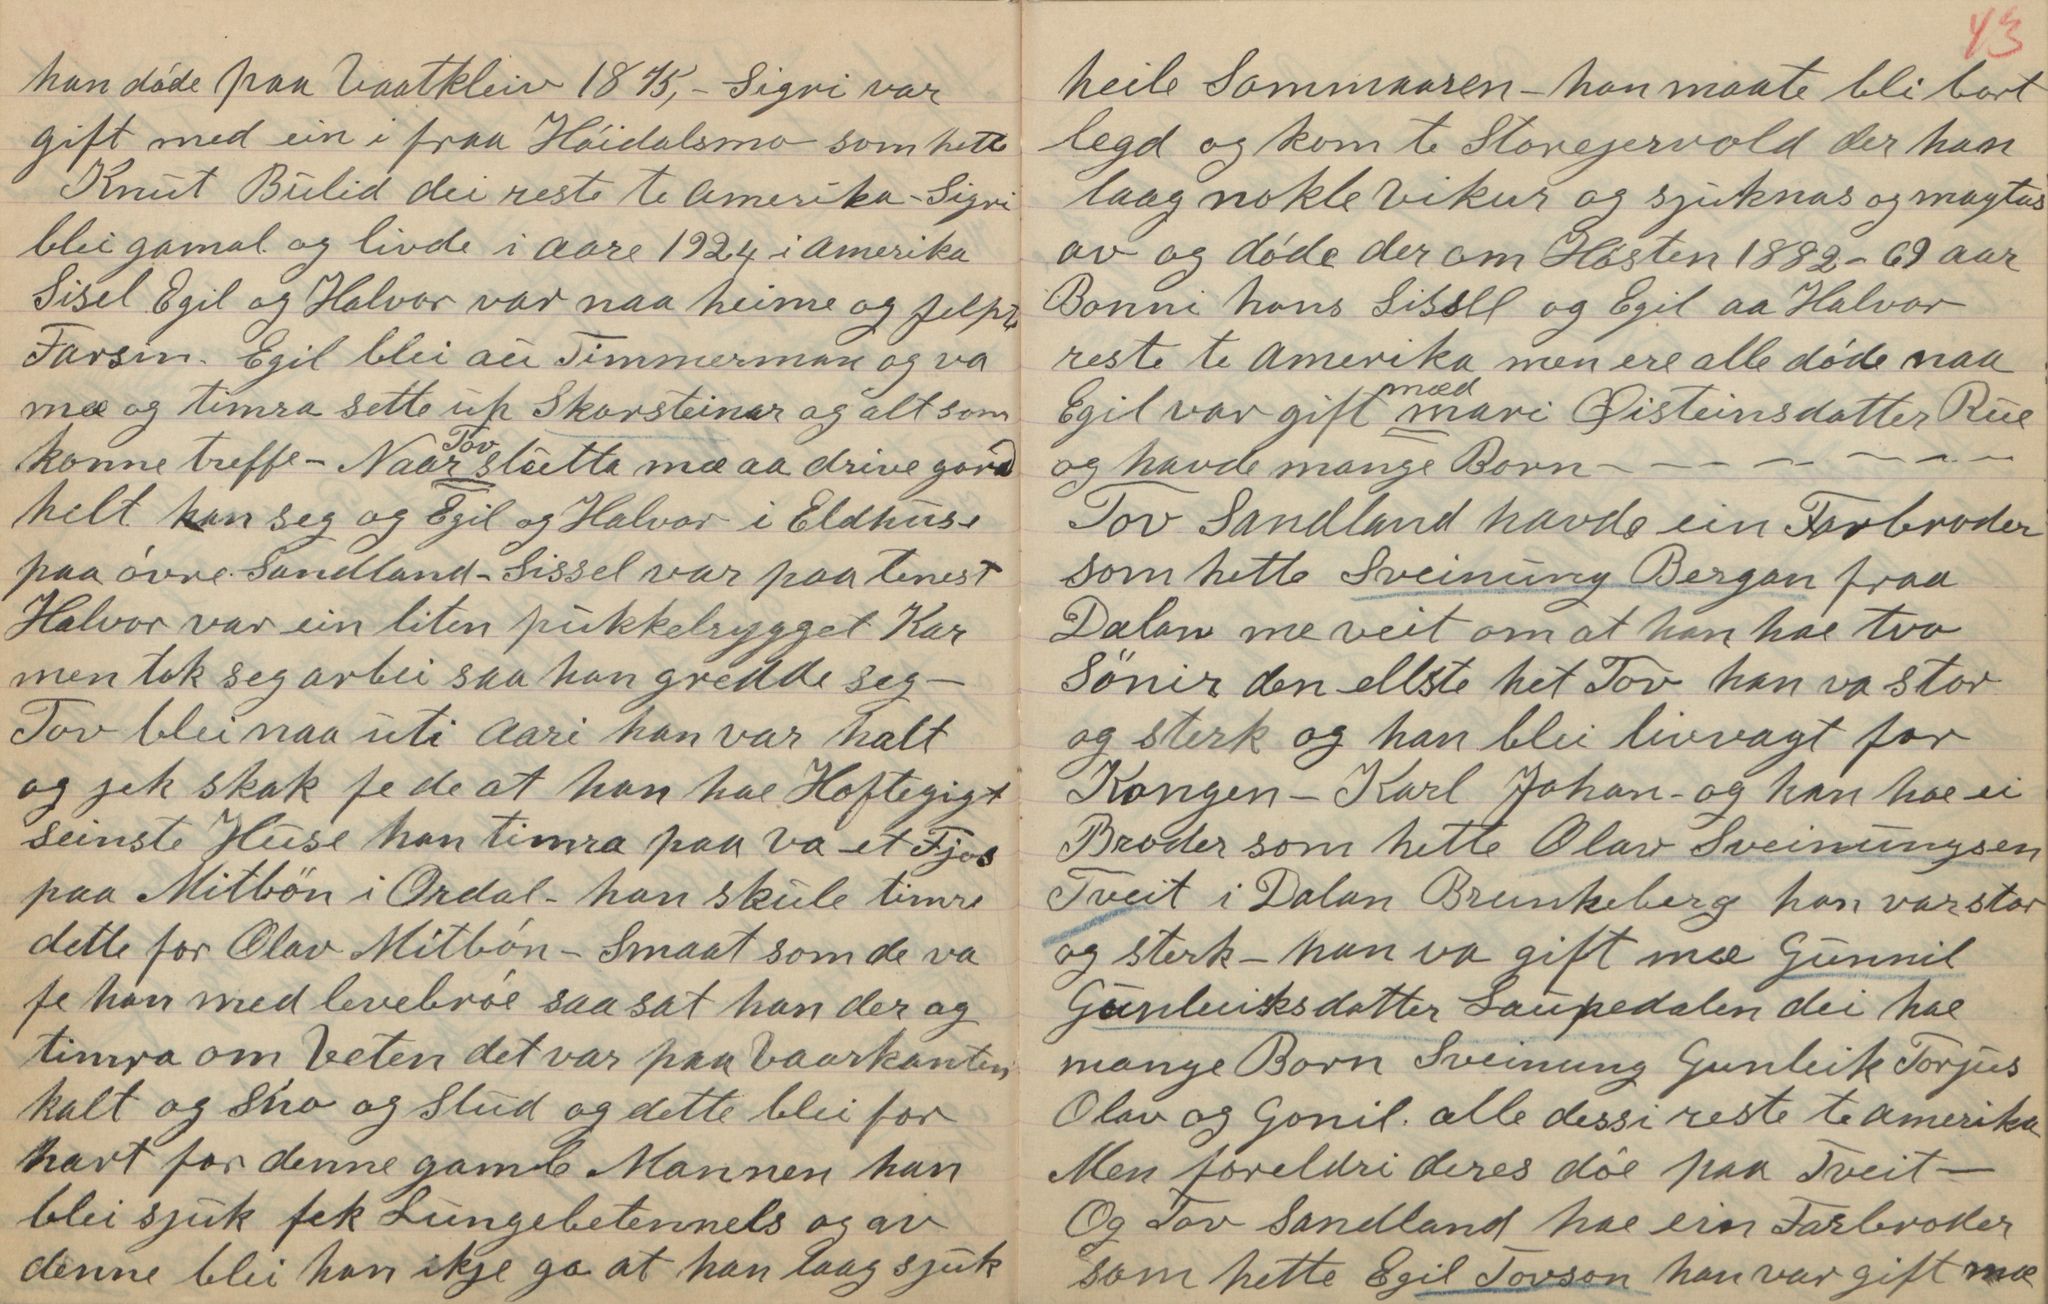 han døde paa Vaatkleiv 1875,- Sigri var
gift med ein i fraa Høidalsmo som hette
Knut Bulid dei reste te Amerika - Sigri
blei gamal og livde i aare 1924 i Amerika
Sisel Egil og Halvor var naa heime og jelpte
Farsin. Egil blei au Timmerman og va
mæ og timra sette up Skorsteinar og alt som
konne treffe - Naar Tov slutta mæ aa drive gard
helt han seg og Egil og Halvor i Eldhuse
paa øvre Sandland - Sissel var paa tenest
Halvor var ein liten pukkelrygget Kar
men tok seg arbei saa han gredde seg -
Tov blei naa uti Aari han var halt
og jek skak fe de at han hae Hoftegigt
seinste Huse han timra paa va et Fjos
paa Mitbön i Ordal - han skule timre
dette for Olav Mitbøn - Smaat som de va
fe han med levebrøe saa sat han der og
timra om Veten det var paa Vaarkanten
kalt og Sno og Slud og dette blei for
hart for denne gamle Mannen han
blei sjuk fek Lungebetennels og av
denne blei han ikje go at han laag sjuk
43
heile Sommaaren - han maate bli bort
legd og kom te Storegjervold der han
laag nokle Vikur og sjuknas og magtas
av og døde der om Høsten 1882 - 69 aar
Bonni hans Sissel og Egil aa Halvor
reste te Amerika men ere alle døde naa
Egil var gift med mari Øisteinsdatter Rue
og havde mange Born - - - - - - -
Tov Sandland havde ein Farbroder
som hette Sveinung Bergan fraa
Dalan me veit om at han hae tvo
Sönir den ellste het Tov han va stor
og sterk og han blei livvagt for
Kongen - Karl Johan - og han hae ei
Broder som hette Olav Sveinungsen
Tveit i Dalan Brunkeberg han var stor
og sterk - han va gift mæ Gunnil
Gunleiksdatter Laupedalen dei hae
mange Born Sveinung Gunleik Torjus
Olav og Gonil. alle dessi reste te Amerika
Men foreldri deres døe paa Tveit -
Og Tov Sandland hae ein Farbroder
som hette Egil Tovson han var gift mæ